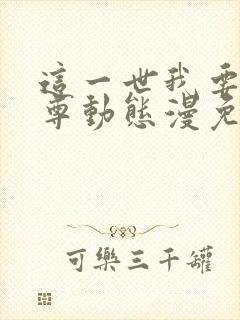 這一世我要
尊動態漫免
可樂三千罐